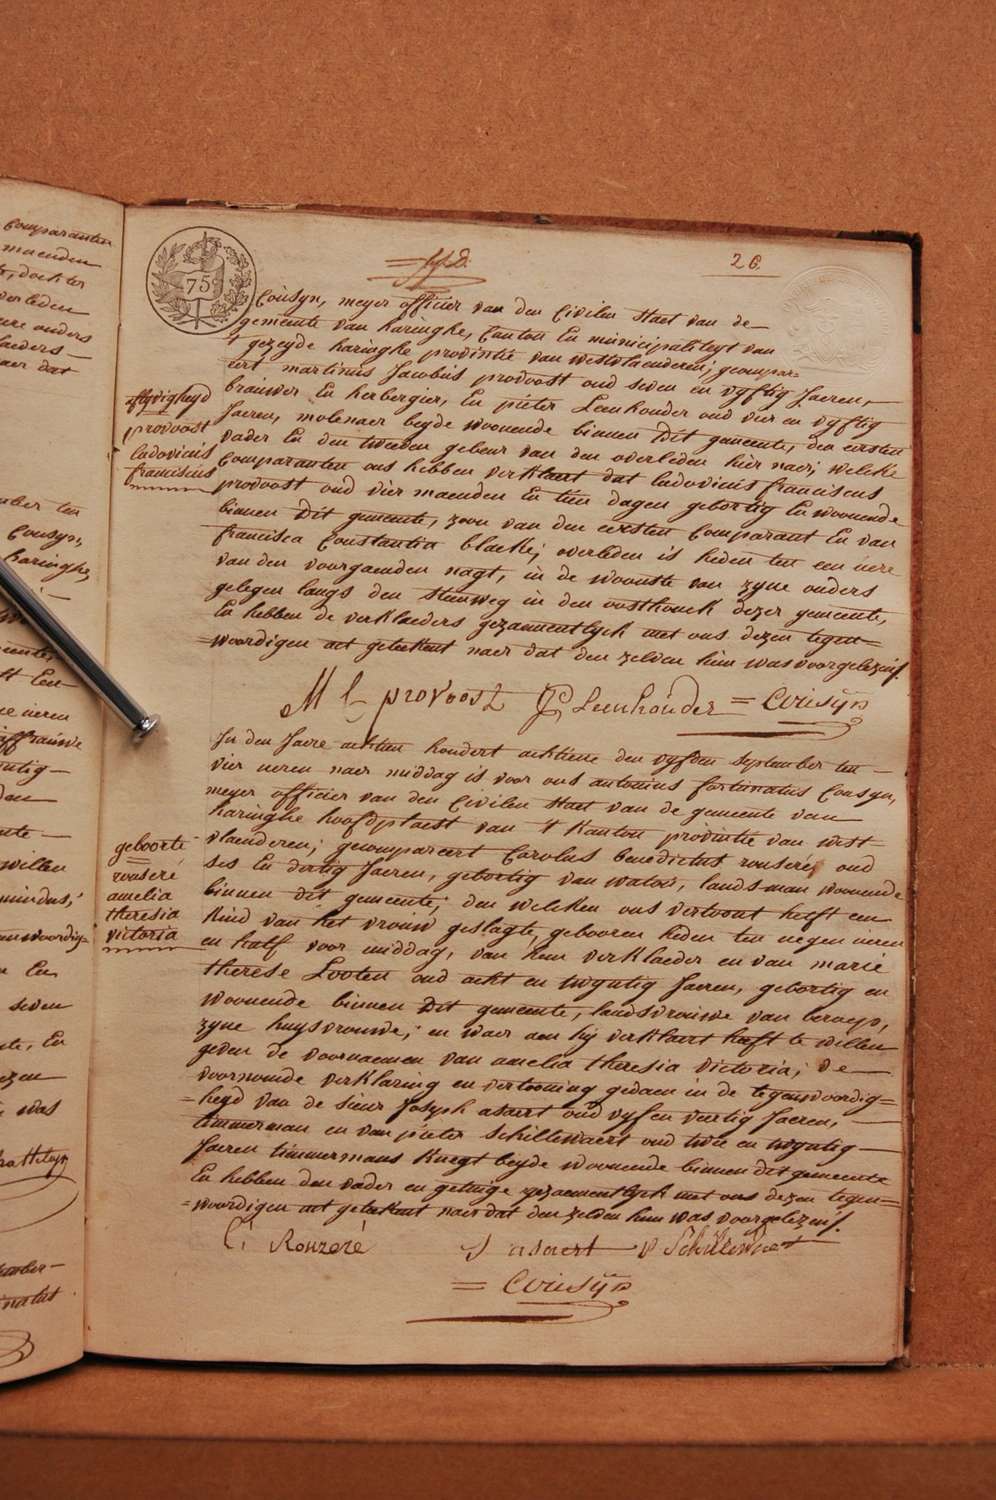 26
75
Cousyn, meyer officier van den Civilen Staet van de
gemeente van haringhe, Canton En municipaliteyt van
't gezeyde haringhe provintie van westvlaenderen; gecompar=
eert martinus Jacobus provoost oud seven en vyftig Jaeren,
brauwer En herbergier, En pieter Leenhouder oud vier en vyftig
Jaeren, molenaer beyde woonende binnen dit gemeente, den eersten
vader En den tweeden gebeur van den overleden hier naer; welcke
Comparanten ons hebben verklaert dat ludovicus franciscus
provoost oud vier maenden En tien dagen gebortig En woonende
binnen dit gemeente, zoon van den eersten Comparant En van
francisca Constantia blacke; overleden is heden ten een uere
van den voorgaenden nagt, in de woonste van zyne ouders
gelegen langs den steenweg in den oosthouck dezer gemeente,
En hebben de verklaeders gezaementlyck met ons dezen tegen=
=woordigen act geteekent naer dat den zelden hun was voorgelezen/.
provoost
ludovicus
franciscus
M L provoost P J Leenhouder = Cousijn
In den Jaere achtien hondert achtiene den vyfden september ten
vier ueren naer middag is voor ons antonius fortunatus Cousyn,
meyer officier van den Civilen Staet van de gemeente van
haringhe hoofdplaest van 't Kanton provintie van west
vlaenderen; gecompareert Carolus benedictus rouseré, oud
ses En dertig Jaeren, gebortig van watou, landsman woonende
binnen dit gemeente; den welcken ons vertoont heeft een
kind van het vrouw geslagte, gebooren heden ten negen ueren
en half voor middag, van hem verklaeder en van marie
therese Looten oud acht en twyntig Jaeren, gebortig en
woonende binnen dit gemeente, landsvrouwe van beroep,
zyne huysvrouwe; en waer aen hy verklaert heeft te willen
geven de voornaemen van amelia theresia victoria; de
voornoemde verklaring en vertooning gedaen in de tegenwoordig=
=heyd van de sieur Joseph asaert oud vyf en veertig Jaeren,
timmerman en van pieter Schillewaert oud twee en twyntig
Jaeren timmermans knegt beyde woonende binnen dit gemeente
En hebben den vader en getuige gezaementlyck met ons dezen tegen=
=woordigen act geteekent naer dat den zelden hun was voorgelezen/.
geboorte
rouseré
amelia
theresia
victoria
Rouzeré J asaert P Schillewaert
= Cousijn